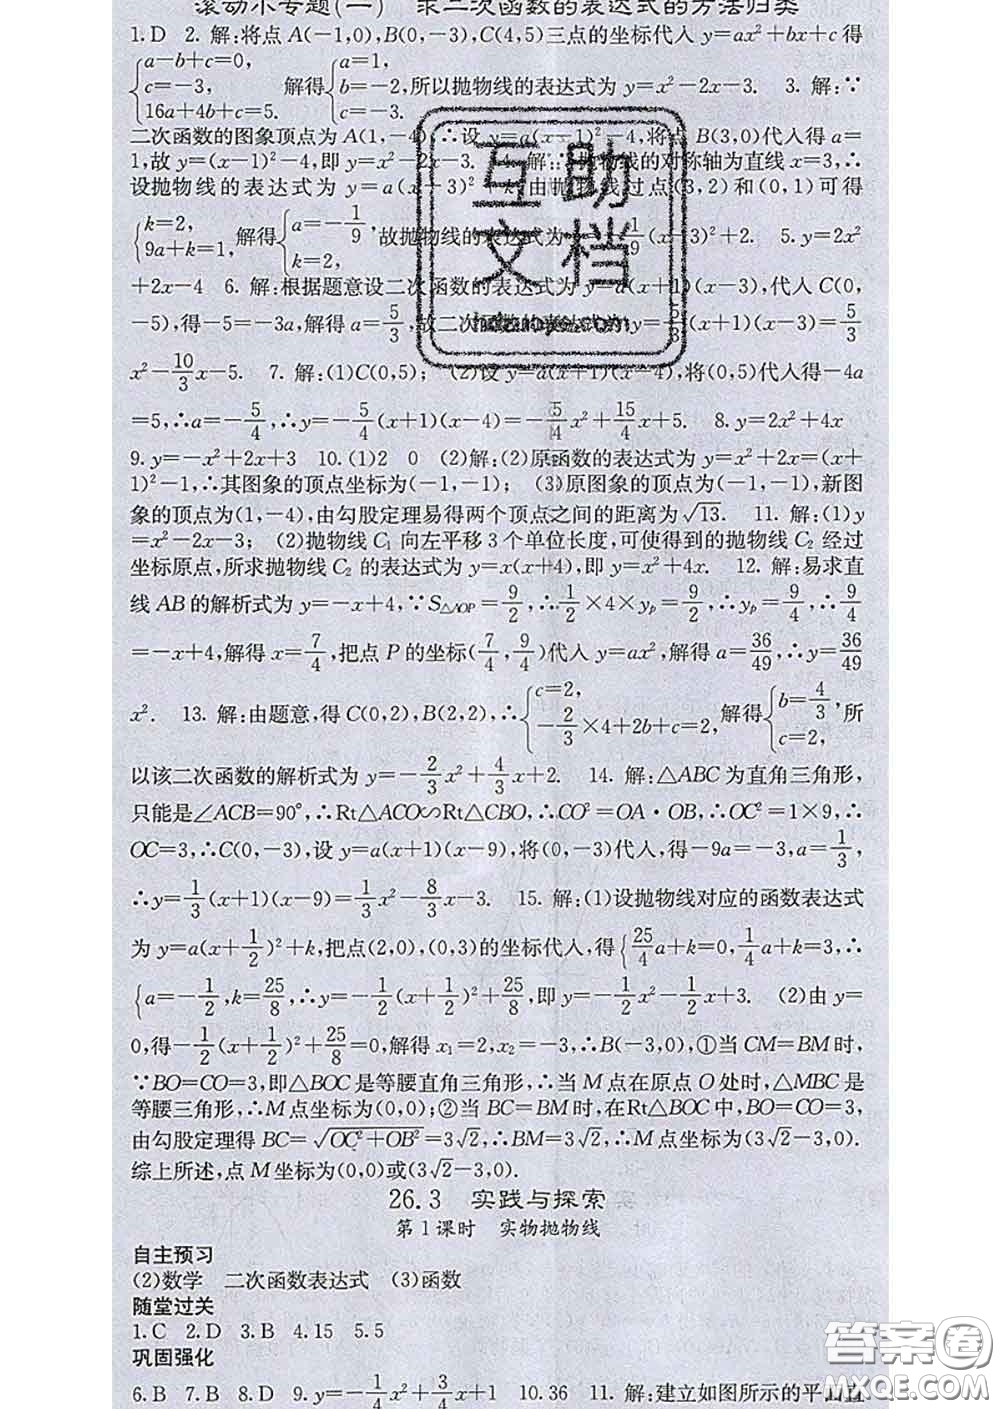 滚动小专题(一) 求二次函数的表达式的方法归类
1. D 2. 解:将点 A(-1,0),B(0,-3),C(4,5)三点的坐标代入 y=ax²+bx+c 得
{a-b+c=0, c=-3, 16a+4b+c=5. 解得{a=1, b=-2, c=-3. 所以抛物线的表达式为 y=x²-2x-3. 3. 解:∵
二次函数的图象顶点为 A(1,-4),∴设 y=a(x-1)²-4,将点 B(3,0)代入得 a=
1,故 y=(x-1)²-4,即 y=x²-2x-3. 4. 解:∵抛物线的对称轴为直线 x=3,∴
设抛物线的表达式为 y=a(x-3)²+k,由抛物线过点(3,2)和(0,1)可得
{k=2, 9a+k=1, 解得{a=-1/9, k=2, 故抛物线的表达式为 y=-1/9(x-3)²+2. 5. y=2x²
+2x-4 6. 解:根据题意设二次函数的表达式为 y=a(x+1)(x-3),代入 C(0,
-5),得-5=-3a,解得 a=5/3,故二次函数的表达式为 y=5/3(x+1)(x-3)=5/3
x²-10/3x-5. 7. 解:(1)C(0,5); (2)设 y=a(x+1)(x-4),将(0,5)代入得-4a
=5,∴a=-5/4,∴y=-5/4(x+1)(x-4)=-5/4x²+15/4x+5. 8. y=2x²+4x
9. y=-x²+2x+3 10. (1)2 0 (2)解:(2)原函数的表达式为 y=x²+2x=(x+
1)²-1,∴其图象的顶点坐标为(-1,-1); (3)原图象的顶点为(-1,-1),新图
象的顶点为(1,-4),由勾股定理易得两个顶点之间的距离为√13. 11. 解:(1)y
=x²-2x-3; (2)抛物线 C₁ 向左平移 3 个单位长度,可使得到的抛物线 C₂ 经过
坐标原点,所求抛物线 C₂ 的表达式为 y=x(x+4),即 y=x²+4x. 12. 解:易求直
线 AB 的解析式为 y=-x+4,∵S△AOP=9/2,∴1/2×4×yₚ=9/2,∴yₚ=9/4,∴9/4
=-x+4,解得 x=7/4,把点 P 的坐标(7/4,9/4)代入 y=ax²,解得 a=36/49,∴y=36/49
x². 13. 解:由题意,得 C(0,2),B(2,2),∴{c=2, -2/3×4+2b+c=2, 解得{b=4/3, c=2, 所
以该二次函数的解析式为 y=-2/3x²+4/3x+2. 14. 解:△ABC 为直角三角形,
只能是∠ACB=90°,∴Rt△ACO∽Rt△CBO,∴CO²=OA·OB,∴OC²=1×9,∴
OC=3,∴C(0,-3),设 y=a(x+1)(x-9),将(0,-3)代入,得-9a=-3,a=1/3,
∴y=1/3(x+1)(x-9)=1/3x²-8/3x-3. 15. 解:(1)设抛物线对应的函数表达式
为 y=a(x+1/2)²+k,把点(2,0),(0,3)的坐标代入,得{25/4a+k=0,1/4a+k=3,∴
{a=-1/2,k=25/8,∴y=-1/2(x+1/2)²+25/8,即 y=-1/2x²-1/2x+3. (2)由 y=
0,得-1/2(x+1/2)²+25/8=0,解得 x₁=2,x₂=-3,∴B(-3,0),①当 CM=BM 时,
∵BO=CO=3,即△BOC 是等腰直角三角形,∴当 M 点在原点 O 处时,△MBC 是
等腰三角形,∴M 点坐标为(0,0);②当 BC=BM 时,在Rt△BOC 中,BO=CO=3,
由勾股定理得 BC=√OC²+OB²=3√2,∴BM=3√2,∴M 点坐标为(3√2-3,0).
综上所述,点 M 坐标为(0,0)或(3√2-3,0).
26.3 实践与探索
第1课时 实物抛物线
自主预习
(2)数学 二次函数表达式 (3)函数
随堂过关
1. C 2. D 3. B 4. 15 5. 5
巩固强化
6. B 7. B 8. D 9. y=-1/4x²+3/4x+1 10. 36 11. 解:建立如图所示的平面直
互助文档
答案圈
MXQE.COM